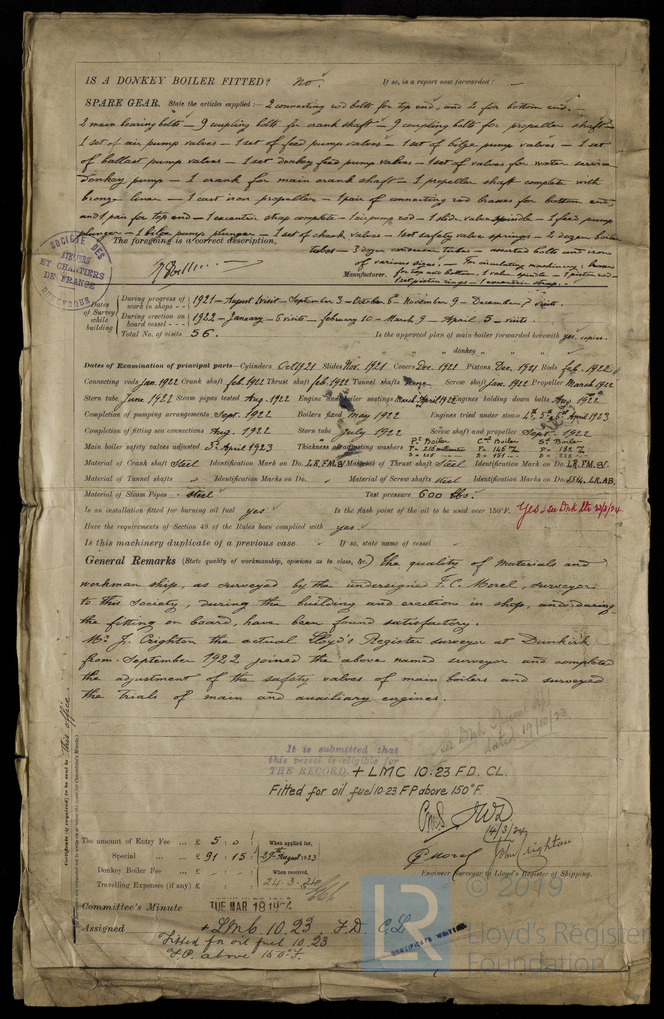 IS A DONKEY BOILER FITTED? no. If so, is a report now forwarded? –
SPARE GEAR. State the articles supplied:— 2 connecting rod bolts for top end, and 2 for bottom end. –
2 main bearing bolts – 9 coupling bolts for crank shaft – 9 coupling bolts for propeller shaft –
1 set of air pump valves – 1 set of feed pump valves – 1 set of bilge pump valves – 1 set
of ballast pump valves – 1 set donkey feed pump valves – 1 set of valves for water service
donkey pump – 1 crank for main crank shaft – 1 propeller shaft complete with
bronze liner – 1 cast iron propeller – 1 pair of connecting rod brasses for bottom end,
and 1 pair for top end – 1 excentric strap complete – 1 air pump rod – 1 slide valve spindle – 1 feed pump
plunger – 1 bilge pump plunger – 1 set of check valves – 1 set safety valve springs – 2 dozen boiler
tubes – 3 dozen condenser tubes – assorted bolts and irons
of various sizes – For circulating machinery: brasses
The foregoing is a correct description,
for top and bottom, 1 valve spindle – 1 piston rod –
Manufacturer. 1 set piston rings – 1 excentric strap. –
SOCIÉTÉ DES
ATELIERS
ET CHANTIERS
DE FRANCE
DUNKERQUE
Dates of Survey while building
During progress of work in shops - - 1921 – August 1 visit – September 3 – October 6 – November 9 – December 7 visits.
During erection on board vessel - - - 1922 – January – 6 visits – February 10 – March 9 – April 5 – visits
Total No. of visits 56. Is the approved plan of main boiler forwarded herewith yes. copies.
" " " donkey " " "
Dates of Examination of principal parts—Cylinders Oct 1921 Slides Nov. 1921 Covers Dec. 1921 Pistons Dec. 1921 Rods feb. 1922
Connecting rods Jan. 1922 Crank shaft feb. 1922 Thrust shaft feb. 1922 Tunnel shafts Screw shaft Jan. 1922 Propeller March 1922
Stern tube June 1922 Steam pipes tested Aug. 1922 Engine and boiler seatings March April 1922 Engines holding down bolts Aug 1922
Completion of pumping arrangements Sept. 1922 Boilers fixed May 1922 Engines tried under steam 4th 5th 6th April 1923
Completion of fitting sea connections Aug. 1922 Stern tube July 1922 Screw shaft and propeller Sept. 1922
Main boiler safety valves adjusted 3d April 1923 Thickness of adjusting washers
Pt. Boiler Cte. Boiler St. Boiler
Material of Crank shaft Steel Identification Mark on Do. LR.FM. Material of Thrust shaft Steel Identification Mark on Do. LR.FM.
Material of Tunnel shafts " Identification Marks on Do. Material of Screw shafts Steel Identification Marks on Do. 554. LR.AB.
Material of Steam Pipes steel Test pressure 600 lbs.
Is an installation fitted for burning oil fuel yes Is the flash point of the oil to be used over 150°F. Yes
Have the requirements of Section 49 of the Rules been complied with yes
Is this machinery duplicate of a previous case If so, state name of vessel
General Remarks (State quality of workmanship, opinions as to class, &c.) The quality of materials and
workman ship, as surveyed by the undersigned F. C. Morel, surveyor
to this Society, during the building and erection in shop, and during
the fitting on board, have been found satisfactory.
Mr. J. Crighton the actual Lloyd's Register surveyor at Dunkirk
from September 1922 joined the above named surveyor and completed
the adjustment of the safety valves of main boilers and surveyed
the trials of main and auxiliary engines.
dated 19/10/23
It is submitted that
this vessel is eligible for
THE RECORD + LMC 10.23 F.D. CL.
Fitted for oil fuel 10.23 F.P. above 150°F.
14/3/24
The amount of Entry Fee ... £ 5 : 0 : When applied for,
Special ... ... £ 91 : 15 : 29th August 1923
Donkey Boiler Fee ... ... £ : : When received,
Travelling Expenses (if any) £ : : 24.3.24
John Crighton
Engineer Surveyor to Lloyd's Register of Shipping.
Committee's Minute TUE MAR 18 1924
Assigned + LMC 10.23 F.D. CL
Fitted for oil fuel 10.23
F.P. above 150°F.
CERTIFICATE WRITTEN
Certificate (if required) to be sent to this office.
LR
© 2019
Lloyd's Register
Foundation